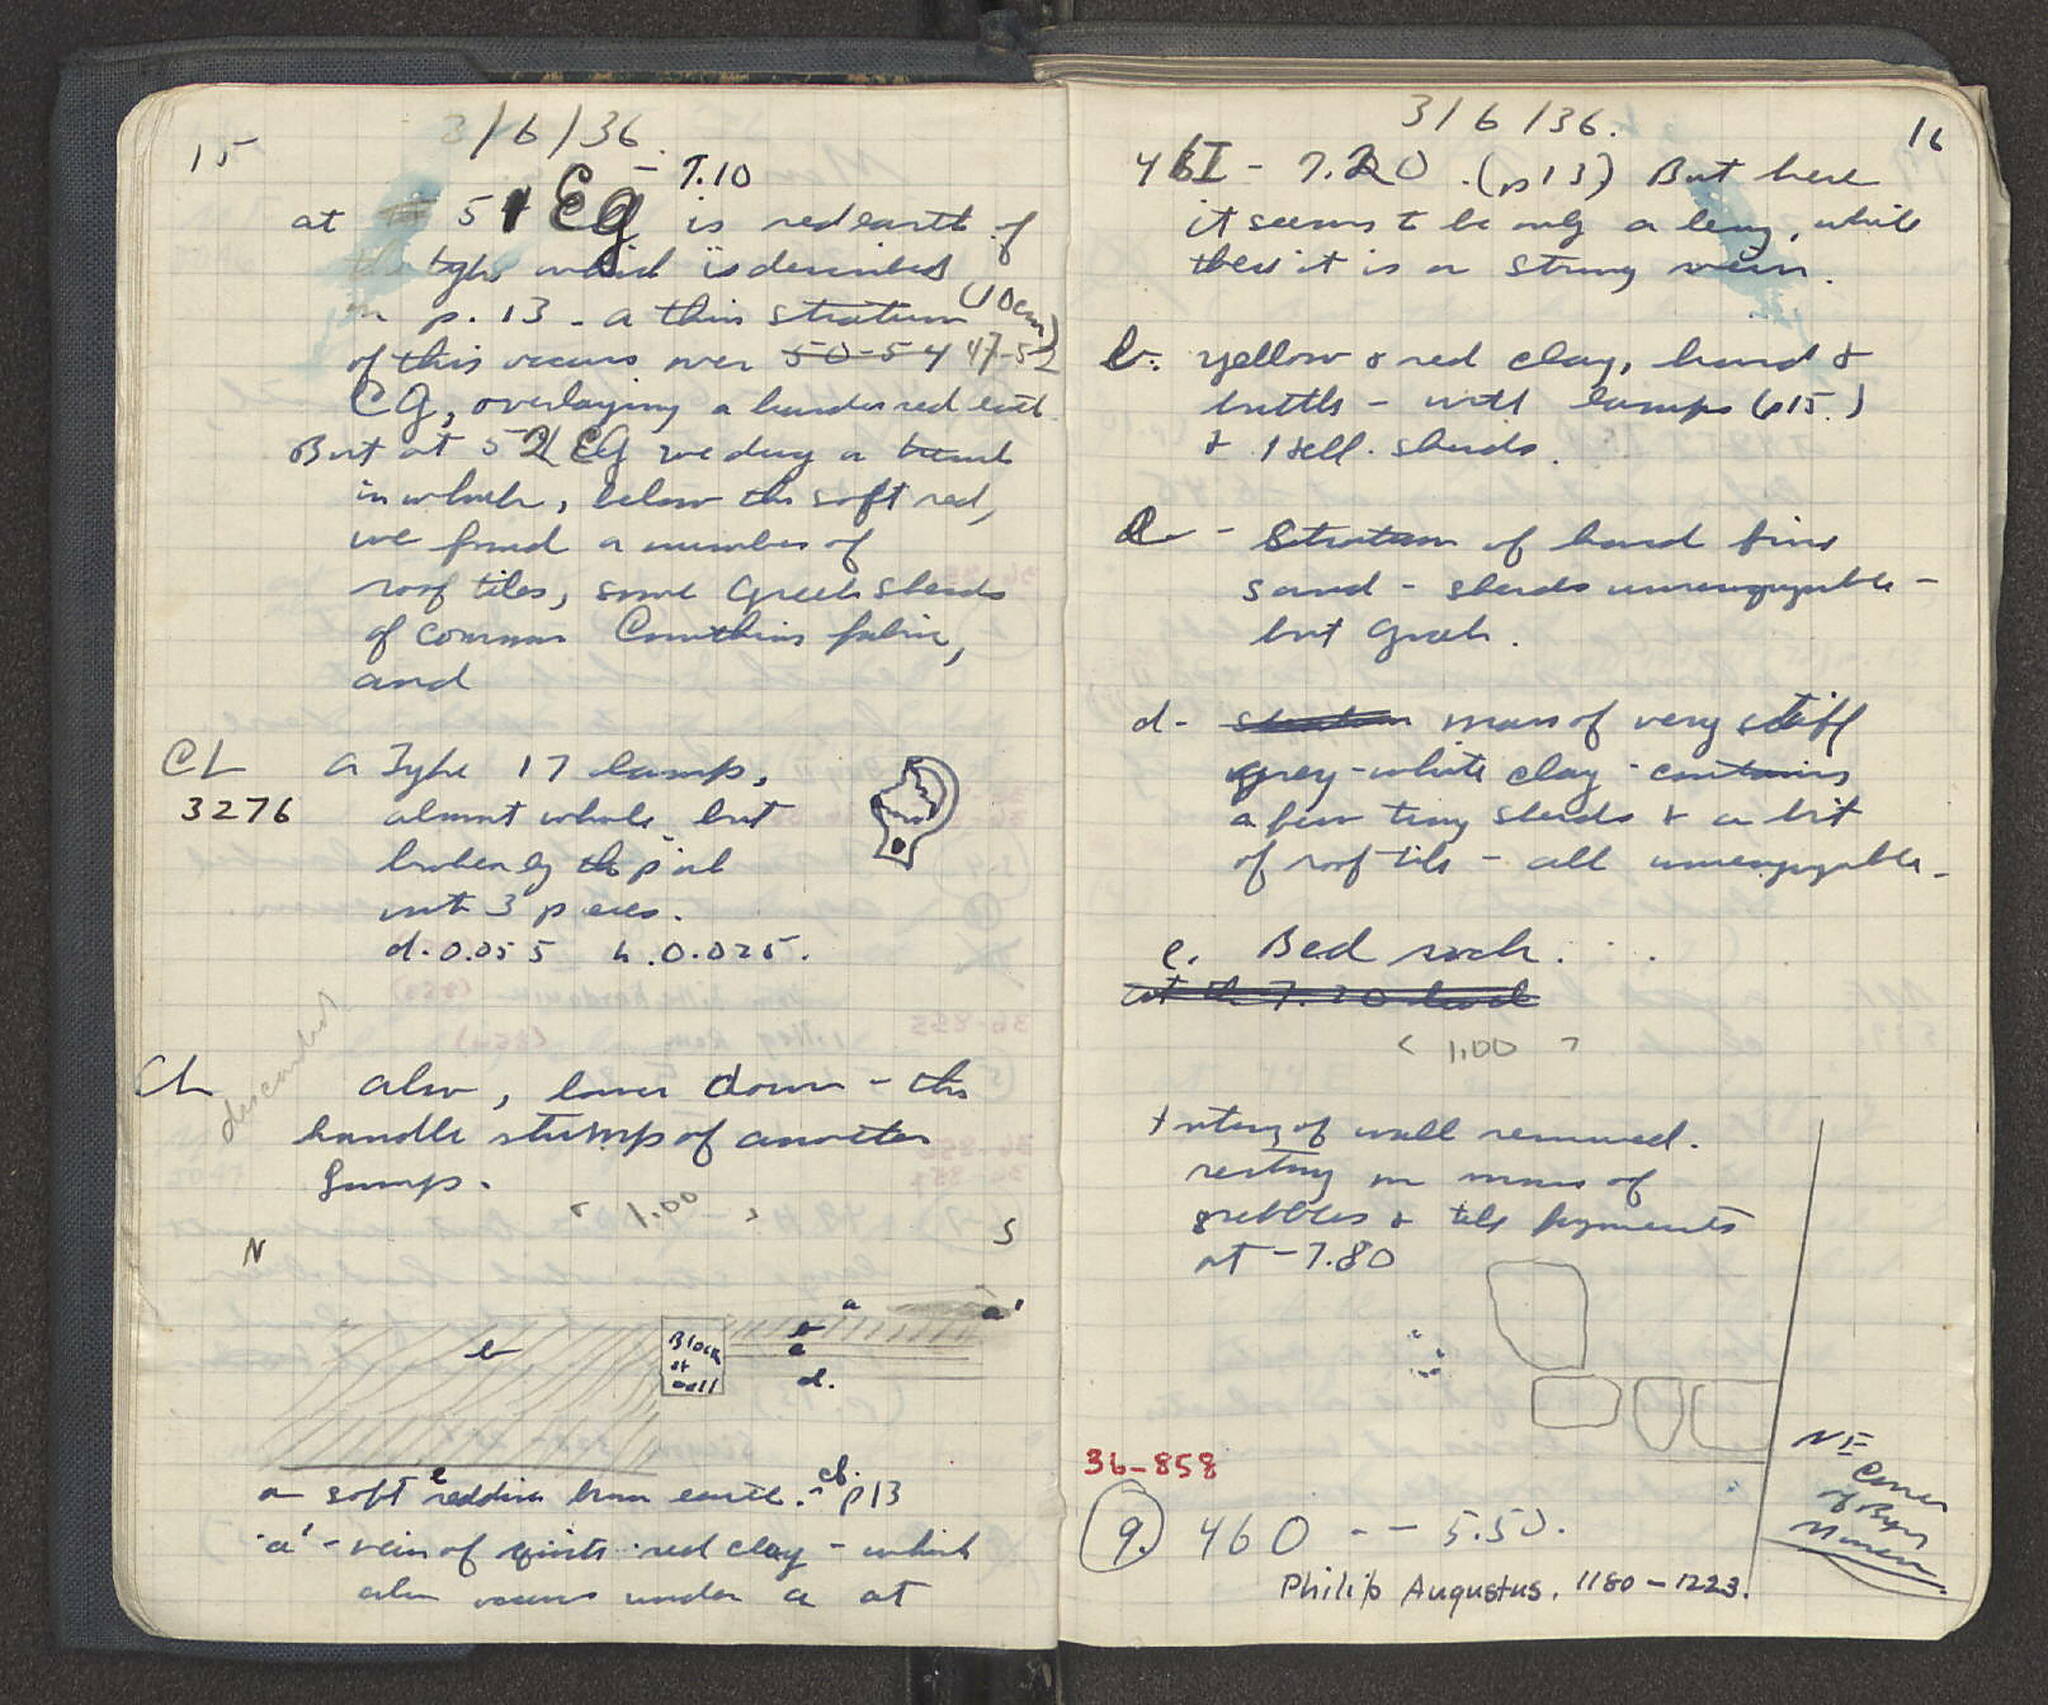 15
3/6/36.
- 7.10
at 51 EG is red earth of
the type which is described
on p. 13 - a thin stratum (10cm)
of this occurs over 50-54 47-52
EG, overlaying a harder red earth
But at 52 EG we dug a trench
in which, below the soft red,
we found a number of
roof tiles, some Greek sherds
of common Corinthian fabric,
and
CL
3276
a Type 17 lamp,
almost whole but
broken by the pick
into 3 pieces.
d. 0.055 h. 0.025.
discarded
CL
also, lower down - the
handle stump of another
lamp.
< 1.00 >
N
S
a
a'
e
Block
of
wall
b
c
d.
e
a soft reddish brown earth. cf. p13
a' - vein of red clay - which
also occurs under a at
3/6/36.
16
46I - 7.20. (p13) But here
it seems to be only a lens, while
there it is a strong vein.
b. yellow & red clay, hard &
brittle - with lamps (p15.)
& 1 sell. sherds.
c - Stratum of hard fine
sand - sherds unrecognizable -
but Greek.
d - stratum mass of very stiff
grey-white clay - contains
a few tiny sherds & a bit
of roof tile - all unrecognizable -
e. Bed rock.
at the 7.30 level
< 1.00 >
of wall removed.
resting on mass of
pebbles & tile fragments
at - 7.80
NE
Corner
of Byz
36-858
9. 460 -- 5.50.
Philip Augustus. 1180-1223.